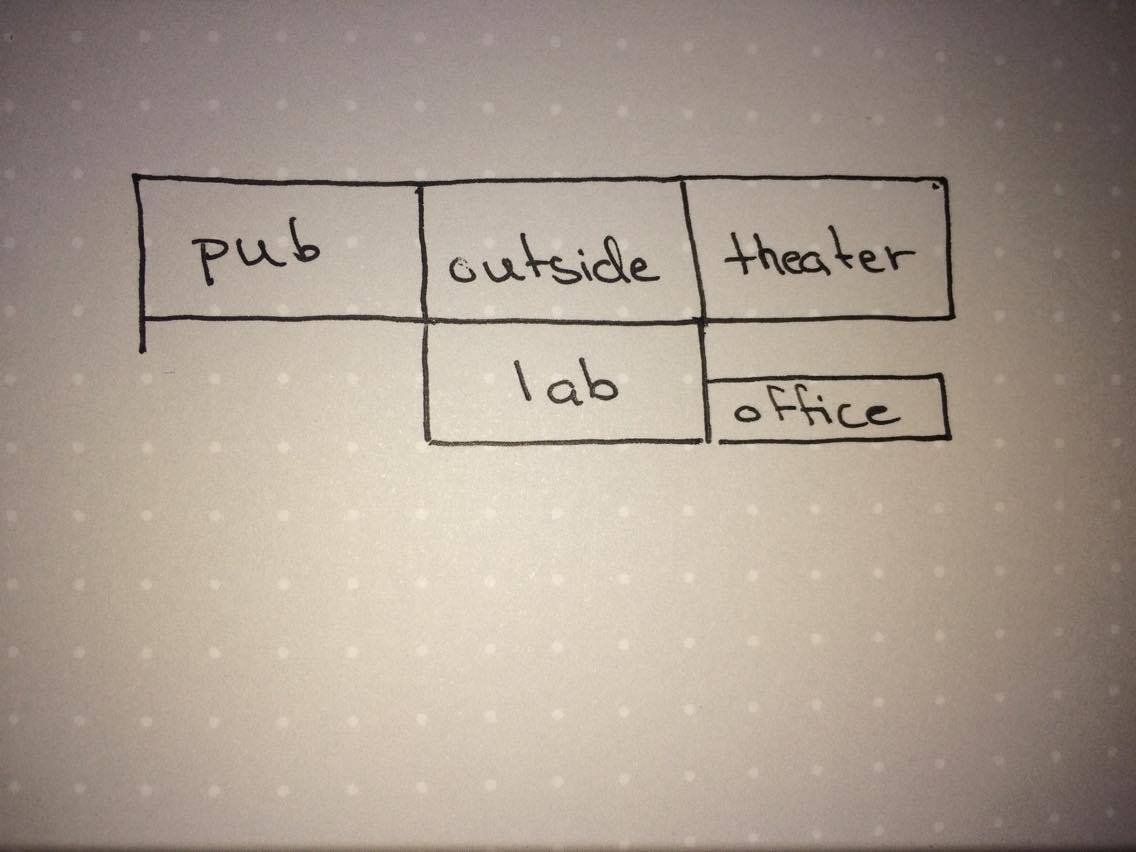 pub outside theater
lab
office